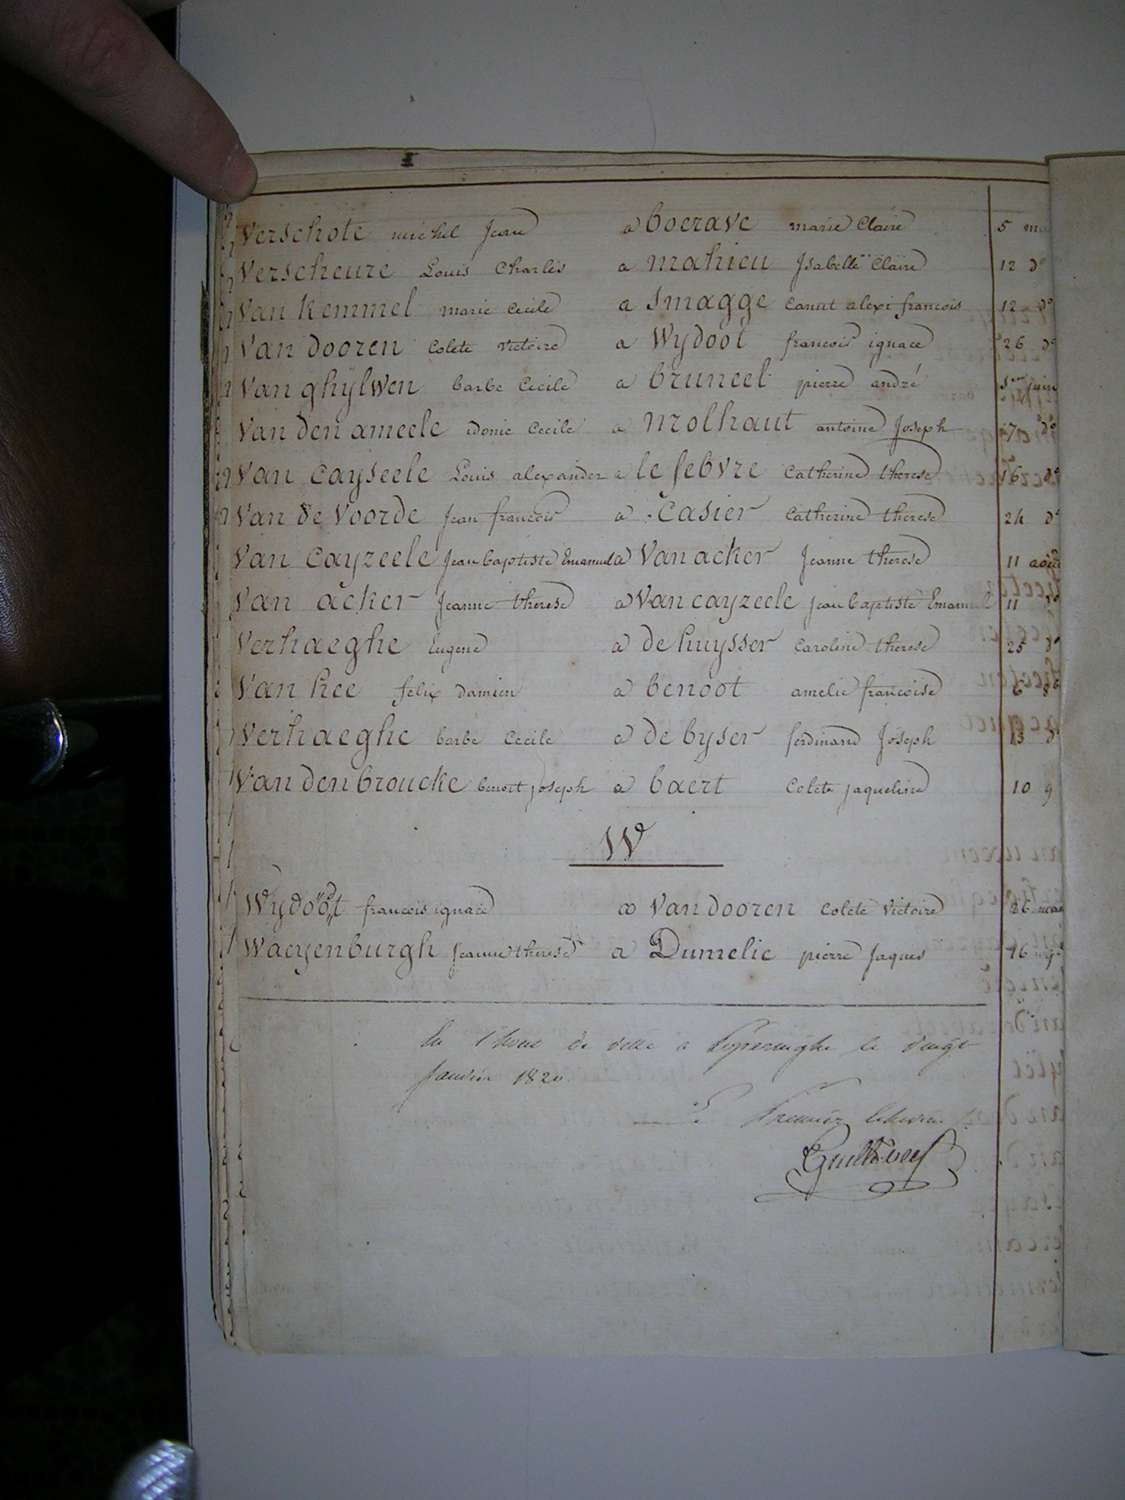 Verschote michel Jean a boerave marie Claire 5
Verscheure Louis Charles a mahieu Isabelle Claire 12 do
Van Kemmel marie Cecile a Smagge Canut alexi francois 12 do
Van dooren Colete Victoire a Wydoot francois ignace 26 do
Van ghylwen barbe Cecile a bruneel pierre andré juin
Van den ameele idonie Cecile a molhaut antoine Joseph 7 do
Van Cayseele Louis alexander a le febvre Catherine therese 16 do
Van de Voorde Jean francois a Casier Catherine therese 24 do
Van Cayzeele Jean baptiste Emanuel a Van acker Jeanne therese 11 août
Van acker Jeanne therese a Van cayzeele Jean baptiste Emanuel 11
Verhaeghe Eugene a de huysser Caroline therese 25 do
Van hee felix damien a benoot amelie francoise 6
Verhaeghe barbe Cecile a de byser ferdinand Joseph 13
Van den broucke benoit joseph a baert Colete jaqueline 10
W
Wydoot francois ignace a Van dooren Colete Victoire 26
Waeyenburgh Jeanne therese a Dumelie pierre Jaques 16
de ville à Poperinghe le vingt
Janvier 1820
Premier